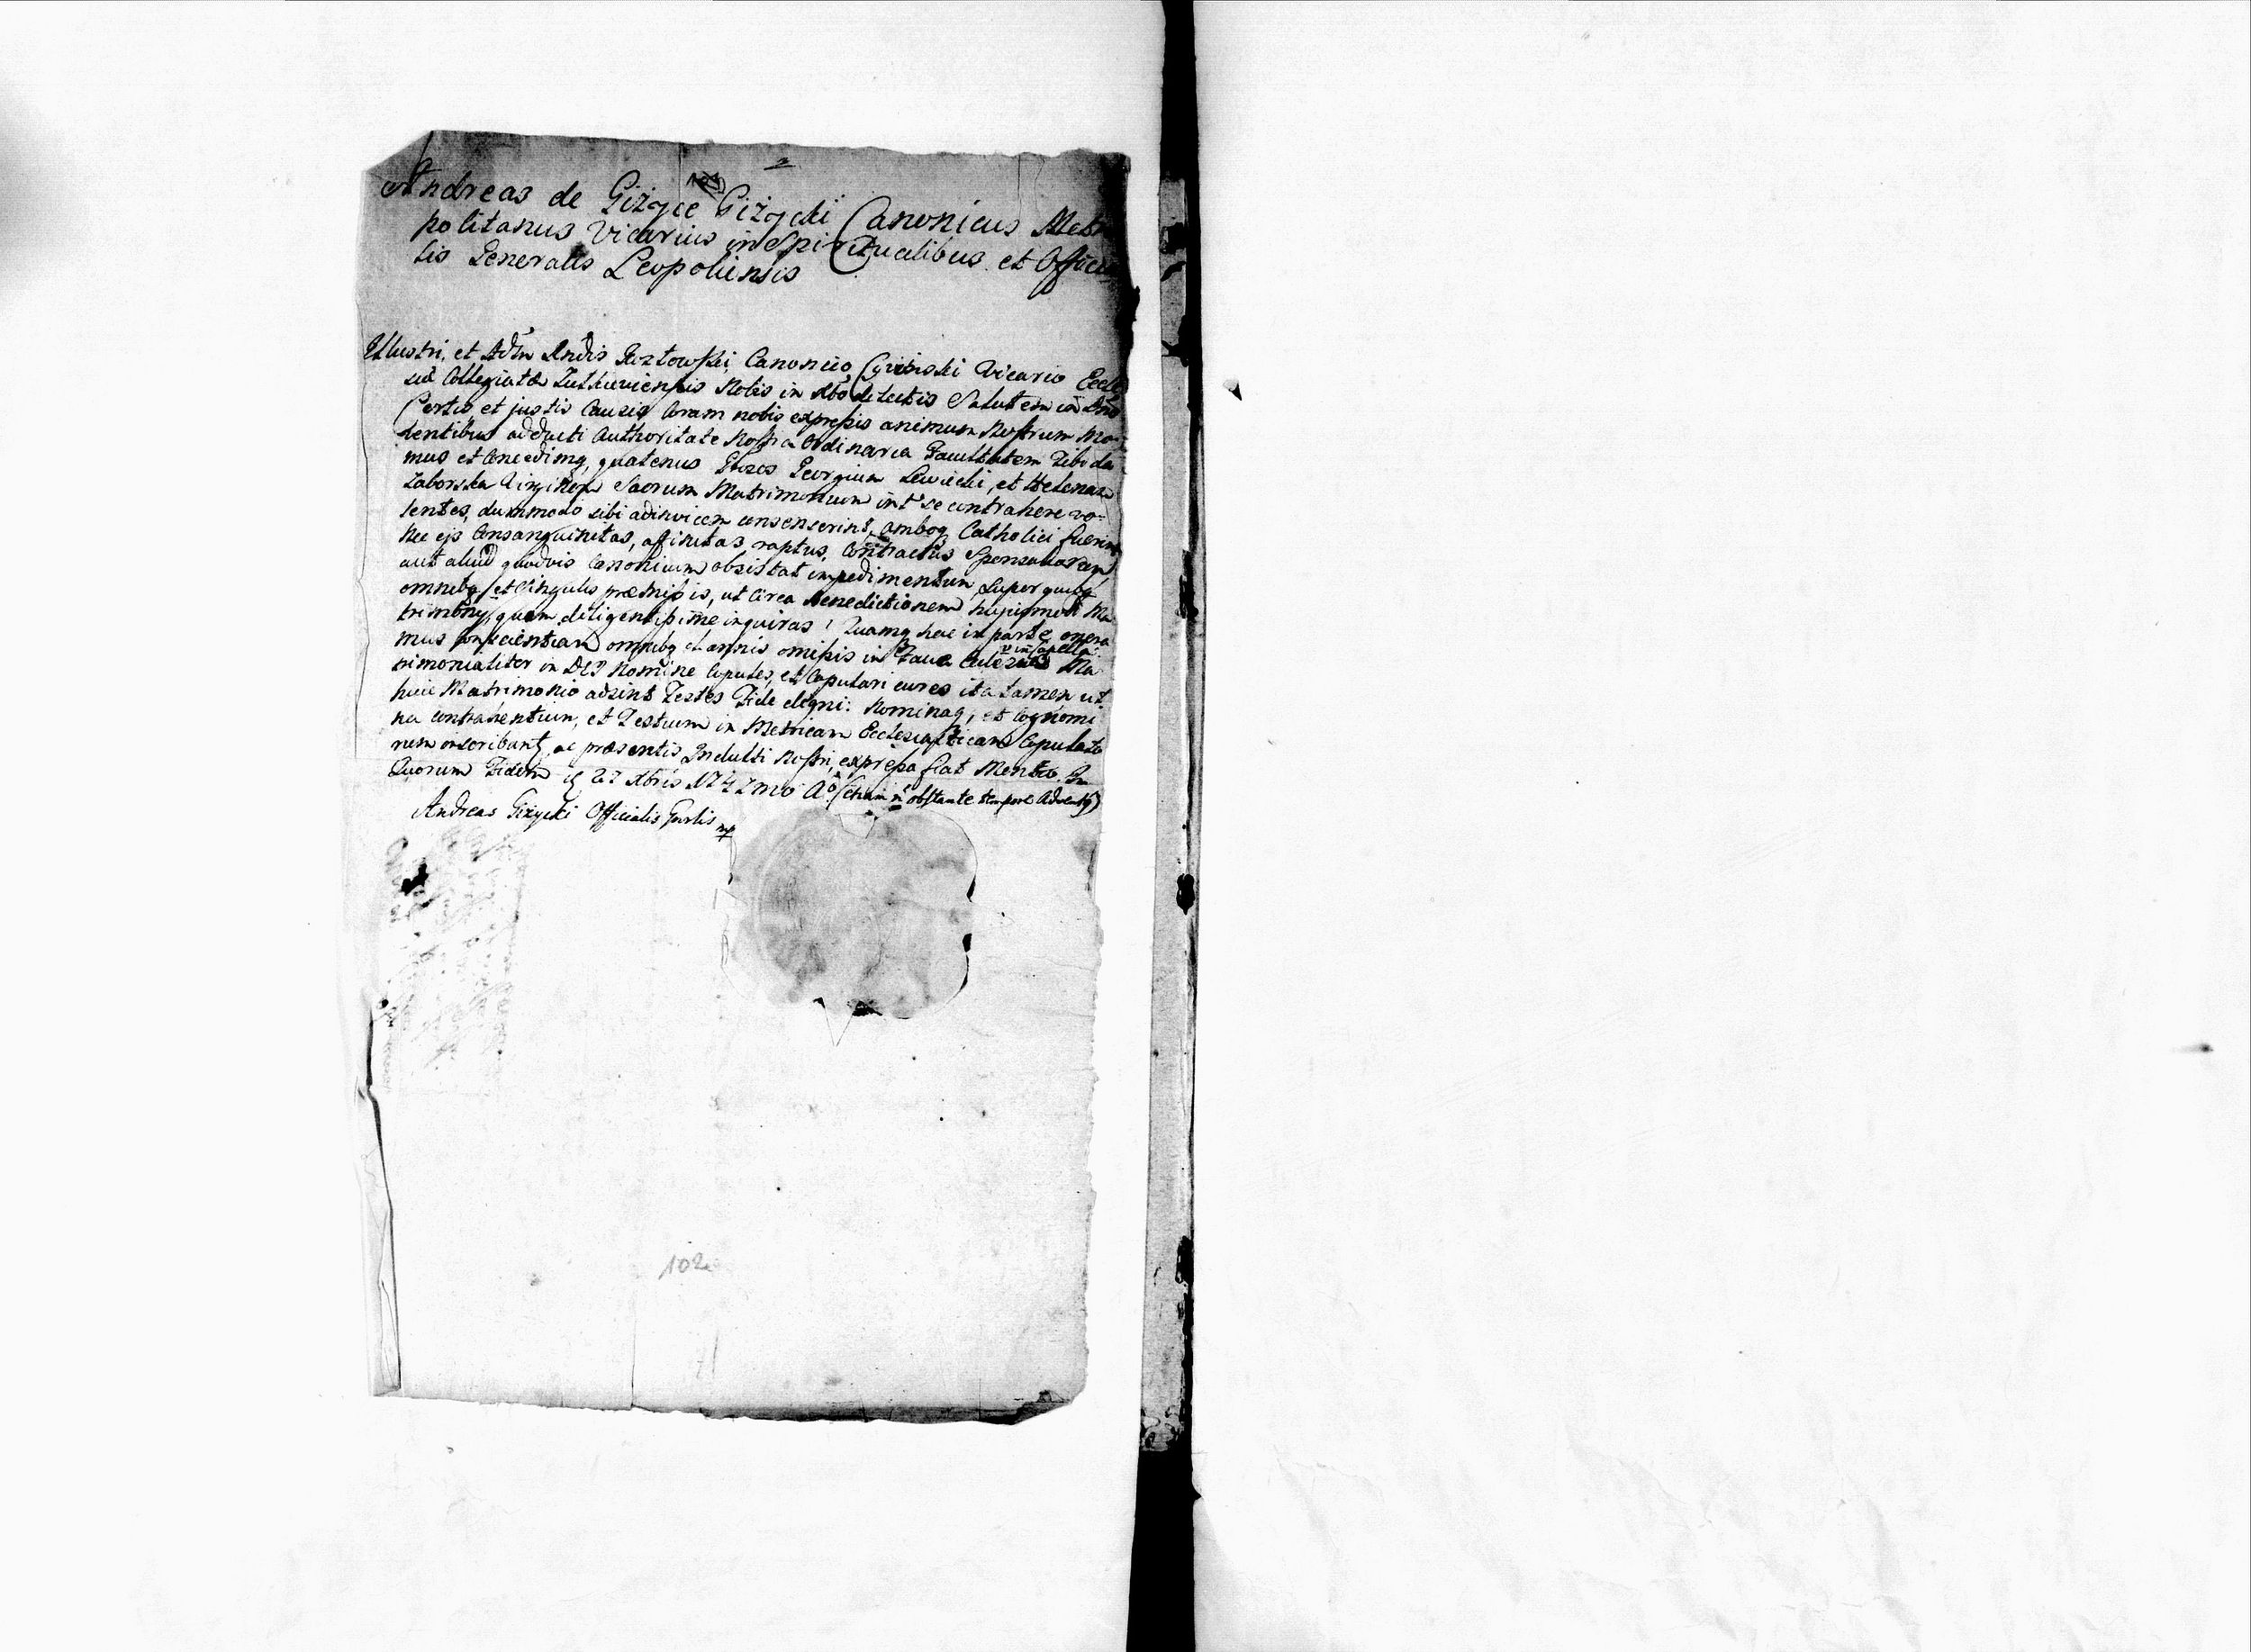 Andreas de Giżyce Giżycki Canonicus Metro
politanus Vicarius in Spiritualibus et Officia
lis Generalis Leopoliensis
Illustri, et Adm Rndis Kozłowski Canonico, Vicario Eccle
siæ Collegiatæ Nobis in Xto dilectis Salutem in Dno
Certis, et justis Causis Coram nobis expressis animum Nostrum Mo-
ventibus adducti Authoritate Nostra Ordinaria Facultatem Tibi da
mus et Concedimq, quatenus Georgium Lewicki, et Helenam
Zaborska Virginem Sacrum Matrimonium int se contrahere vo-
lentes, dummodo sibi adinvicem consenserint, amboq Catholici fuerint
Nec ejs Consanguinitas, affinitas raptus, Contractus Sponsaliorum
aut aliud quodvis Canonicum obsistat impedimentum, Super quibq
omnibq et Singulis præmissis, ut Circa Benedictionem hujusmodi Ma
trimonÿ, quam diligentissime inquiras; Tuamq hac in parte onera
mus Conscientiam omnibq et annis omissis in Facie Ecclesiæ v in Capella Ma
trimonialiter in DEI Nomine Copules, et Copulari cures ita tamen ut
huic Matrimonio adsint Testes Fide digni: Nominaq, et Cognomi
na contrahentium, et Testium in Metricam Ecclesiasticam Copulato
rum inscribantq, ac præsentis Indulti Nostri, expressa fiat Mentio. In
Quorum Fidem 27 Xbris 1747mo Ao (etiam n obstante tempore Adventq)
Andreas Giżycki Officialis Gnrlis mp
102